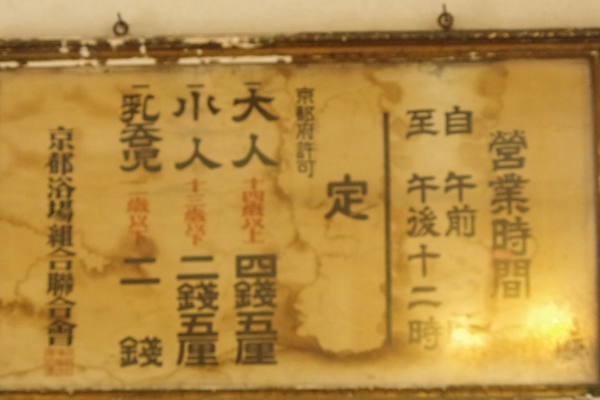 營業時間
自 午前
至 午後十二時
定
京都府許可
一大人 十四歳以上 四錢五厘
一小人 十三歳以下 二錢五厘
一乳呑児 二歳以下 二錢
京都浴場組合聯合會